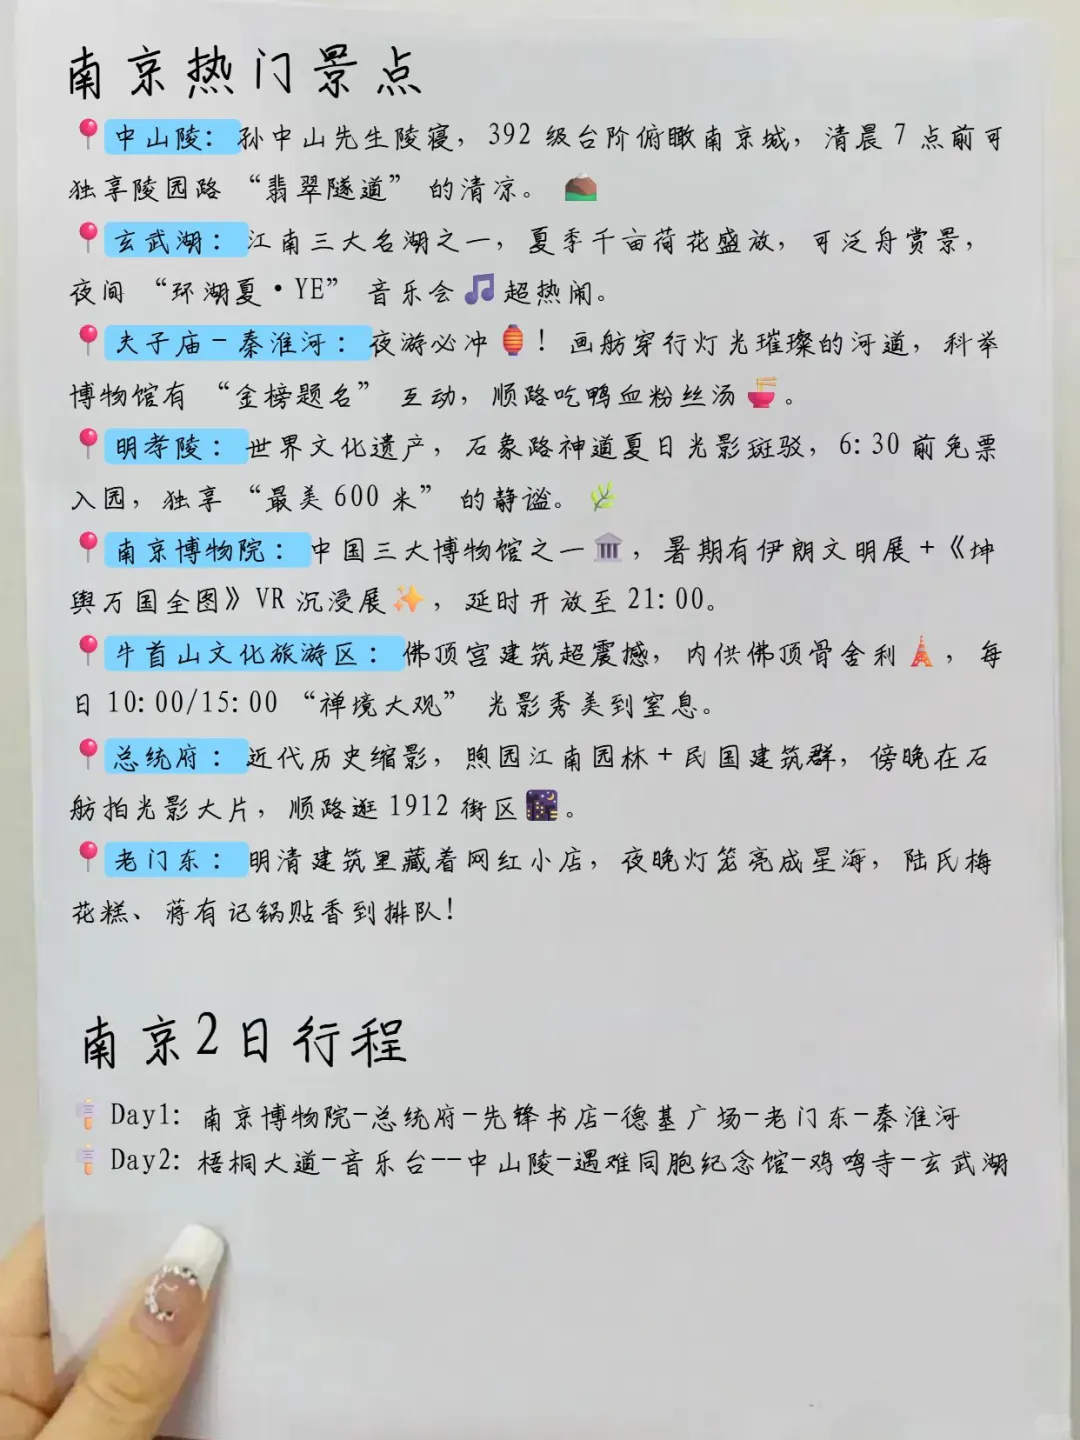 南京热门景点
📍中山陵：孙中山先生陵寝，392 级台阶俯瞰南京城，清晨 7 点前可
独享陵园路 “翡翠隧道” 的清凉。⛰️
📍玄武湖：江南三大名湖之一，夏季千亩荷花盛放，可泛舟赏景，
夜间 “环湖夏・YE” 音乐会🎵超热闹。
📍夫子庙-秦淮河：夜游必冲🏮！画舫穿行灯光璀璨的河道，科举
博物馆有 “金榜题名” 互动，顺路吃鸭血粉丝汤🍜。
📍明孝陵：世界文化遗产，石象路神道夏日光影斑驳，6:30 前免票
入园，独享 “最美 600 米” 的静谧。🌿
📍南京博物院：中国三大博物馆之一🏛️，暑期有伊朗文明展 +《坤
舆万国全图》VR 沉浸展✨，延时开放至 21:00。
📍牛首山文化旅游区：佛顶宫建筑超震撼，内供佛顶骨舍利🗼，每
日 10:00/15:00 “禅境大观” 光影秀美到窒息。
📍总统府：近代历史缩影，煦园江南园林 + 民国建筑群，傍晚在石
舫拍光影大片，顺路逛 1912 街区🌃。
📍老门东：明清建筑里藏着网红小店，夜晚灯笼亮成星海，陆氏梅
花糕、蒋有记锅贴香到排队！
南京2日行程
Day1: 南京博物院-总统府-先锋书店-德基广场-老门东-秦淮河
Day2: 梧桐大道-音乐台--中山陵-遇难同胞纪念馆-鸡鸣寺-玄武湖